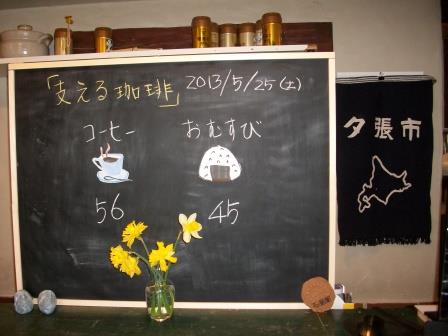 「支える珈琲」 2013/5/25(土)
コーヒー おむすび
56 45
夕張市